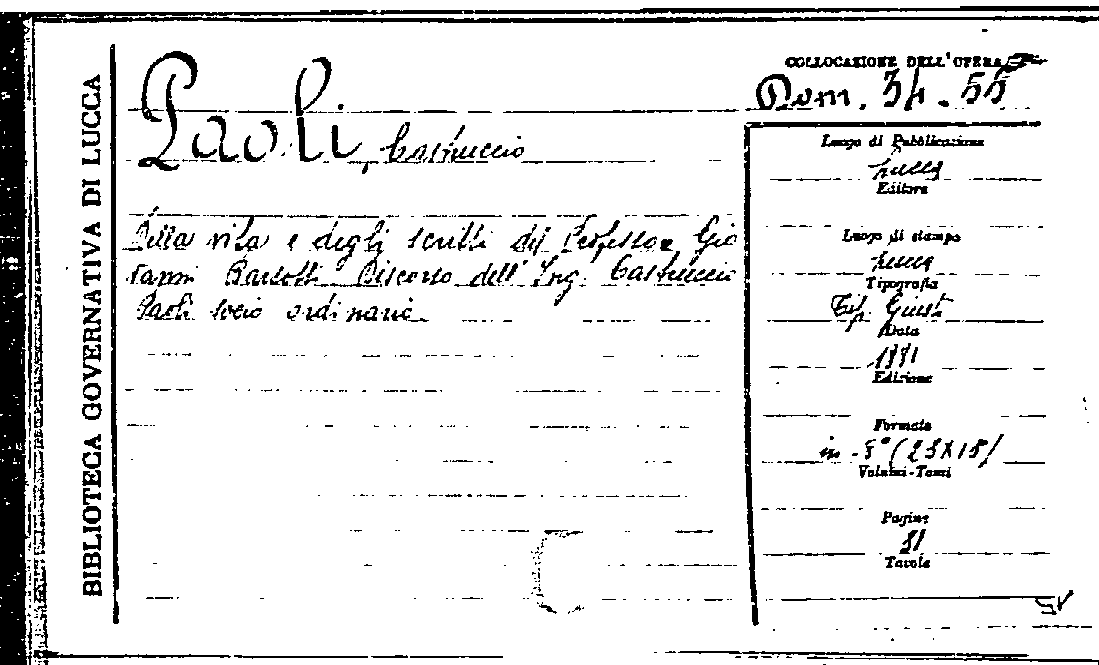 BIBLIOTECA GOVERNATIVA DI LUCCA
Paoli, Castruccio
Della vita e degli scritti del Professor Gio
vanni Barsotti. Discorso dell'Ing. Castruccio
Paoli socio ordinario
COLLOCAZIONE DELL'OPERA
Dom. 34. 55
Luogo di Pubblicazione
Lucca
Editore
Luogo di stampa
Lucca
Tipografia
Tip. Giusti
Data
Edizione
Formato
in-8° (23X15)
Volumi-Tomi
Pagine
Tavole